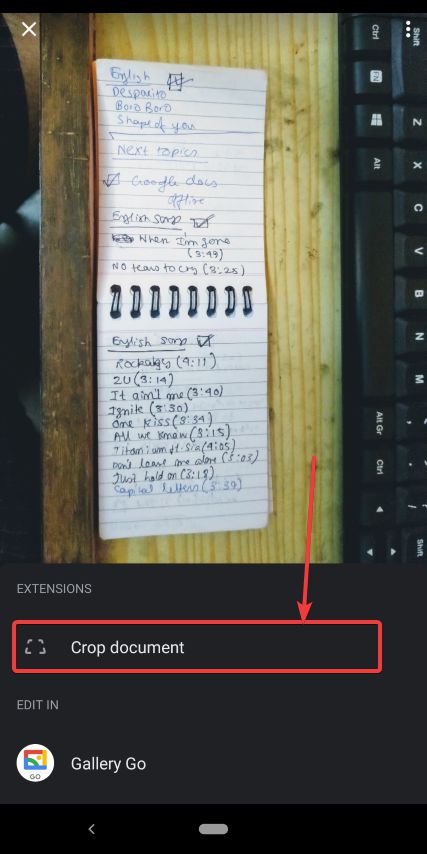 English
Despacito
Boro Boro
Shape of you
Next topics
Google docs
offline
English songs
When I'm gone
(3:49)
NO tears to cry (3:25)
English song
Rockabye (4:11)
2U (3:14)
It ain't me (3:40)
Ignite (3:30)
One Kiss (3:34)
All we know (3:15)
Titanium ft. Sia (4:05)
Don't leave me alone (3:03)
Just hold on (3:18)
Capital letters (3:39)
Shift
Z
X
C
V
B
N
M
Shift
Ctrl
FN
Alt
Alt Gr
Ctrl
EXTENSIONS
Crop document
EDIT IN
GO
Gallery Go